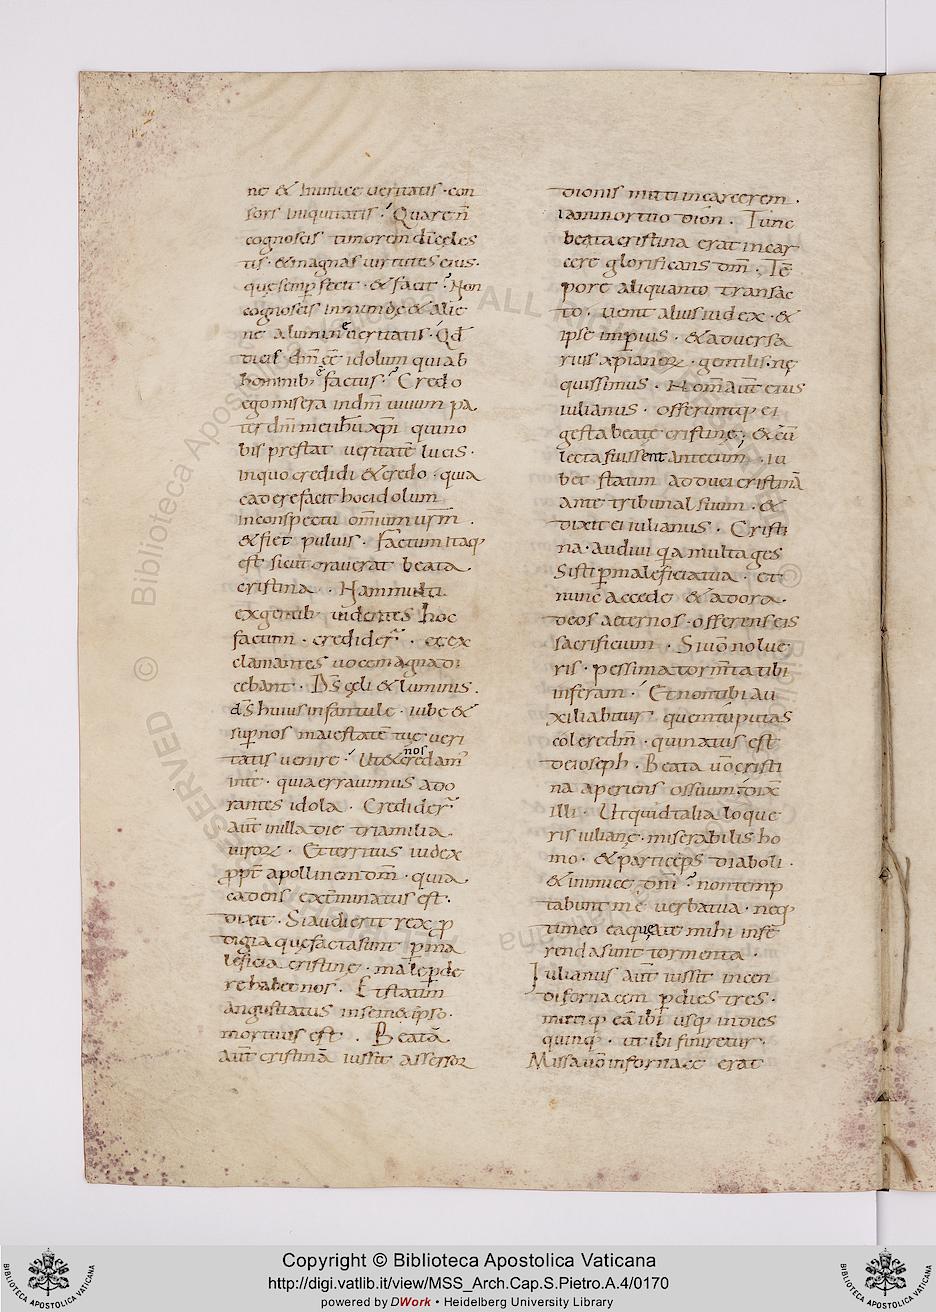 ne & inimice ueritatis · con
sors iniquitatis · Quare ñ
cognoscis timorem di cęles
tis · & magnas uirtutes eius ·
quę semp fecit · & facit · Non
cognoscis inmundę & alie
ne a lumine ueritatis · Qđ
dicis dm̄ eē idolum qui ab
hominib; factus · Credo
ego misera in dm̄ uiuum pa
trē dni mei ihu xpi qui no
bis prestat ueritatē lucis ·
in quo credidi & credo · quia
cadere facit hoc idolum
in conspectu omium urm̄ .
& fiet puluis · Factum itaq;
est sicut orauerat beata
cristina · Nam multi
ex gentib; uidentes hoc
factum · crediderr̄ · et ex
clamantes uoce magna di
cebant · Ds̄ cęli & luminis .
ds̄ huius infantule · iube &
sup nos maiestatē tuę ueri
tatis uenire · Ut & nos credam'
in te · quia errauimus ado
rantes idola · Credider̄
aūt in illa die tria milia
uiroꝝ · Et territus iudex
ꝓpt apollinem dm̄ · quia
cadens exterminatus est ·
dixit · Si audierit rex ꝓ
digia quę facta sunt p ma
leficia cristinę · male pde
re habet nos · Et statim
angustiatus in semetipso ·
mortuus est · Beatā
aūt cristinā iussit assessor
dionis mitti in carcerem ·
iam mortuo dion · Tunc
beata cristina erat in car
cere glorificans dm̄ · Tē
pore aliquanto transac
to · uenit alius iudex · &
ipse impius · & aduersa
rius xpianoꝝ · gentilis · ne
quissimus · Nom̄ aūt eius
iulianus · offeruntq; ei
gesta beatę cristinę; & cū
lecta fuissent ante eum · iu
bet statim adduci cristinā
ante tribunal suum · &
dixit ei iulianus · Cristi
na · audiui q̄a multa ges
sisti p maleficia tua · et
nunc accede & adora ·
deos aeternos · offerens eis
sacrificium · Si uō nolue
ris · pessima tormta tibi
inferam · Et non tibi au
xiliabitur quem tu putas
colere dm̄ · qui natus est
de ioseph · Beata uō cristi
na aperiens os suum dix̄
illi · Ut quid talia loque
ris iulianę · miserabilis ho
mo · & particeps diaboli ·
& inimice dni · non temp
tabunt me uerba tua · neq;
timeo ea quę a te mihi infe
renda sunt tormenta ·
Iulianus aūt iussit incen
di fornacem p dies tres ·
mittiq; eā ibi usq; in dies
quinq; · ut ibi finiretur ·
Missa uō in fornace erat
Copyright © Biblioteca Apostolica Vaticana
http://digi.vatlib.it/view/MSS_Arch.Cap.S.Pietro.A.4/0170
powered by DWork • Heidelberg University Library